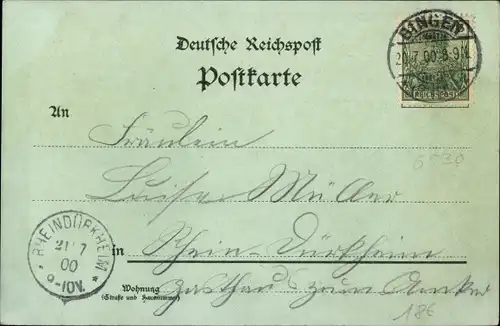 BINGEN
20.7.00.8-9V.
REICHSPOST
Deutsche Reichspost
Postkarte
An
Fräulein
Luise Müller
6530
RHEINDÜRKHEIM
21/7
00
9-10V.
in Rhein-Dürkheim
Wohnung
(Straße und Hausnummer)
Gasthaus zum Anker
18€